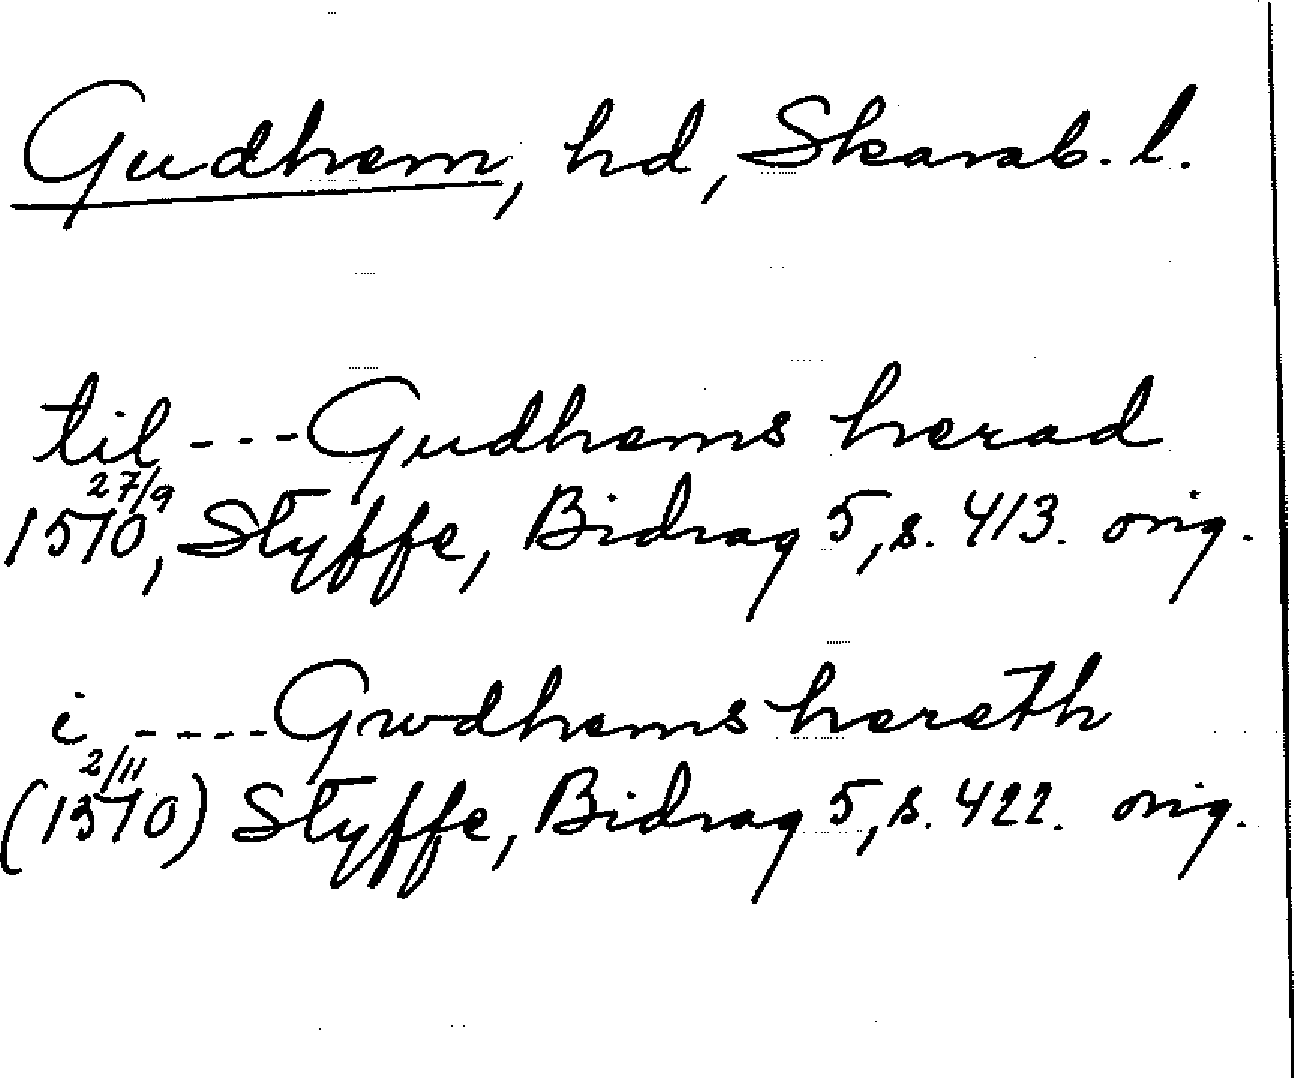 Gudhem, hd, Skarab. l.
til --- Gudhems herad
27/9
1510, Styffe, Bidrag 5, s. 413. orig.
i ----- Gwdhems hereth
2/11
(1510) Styffe, Bidrag 5, s. 422. orig.